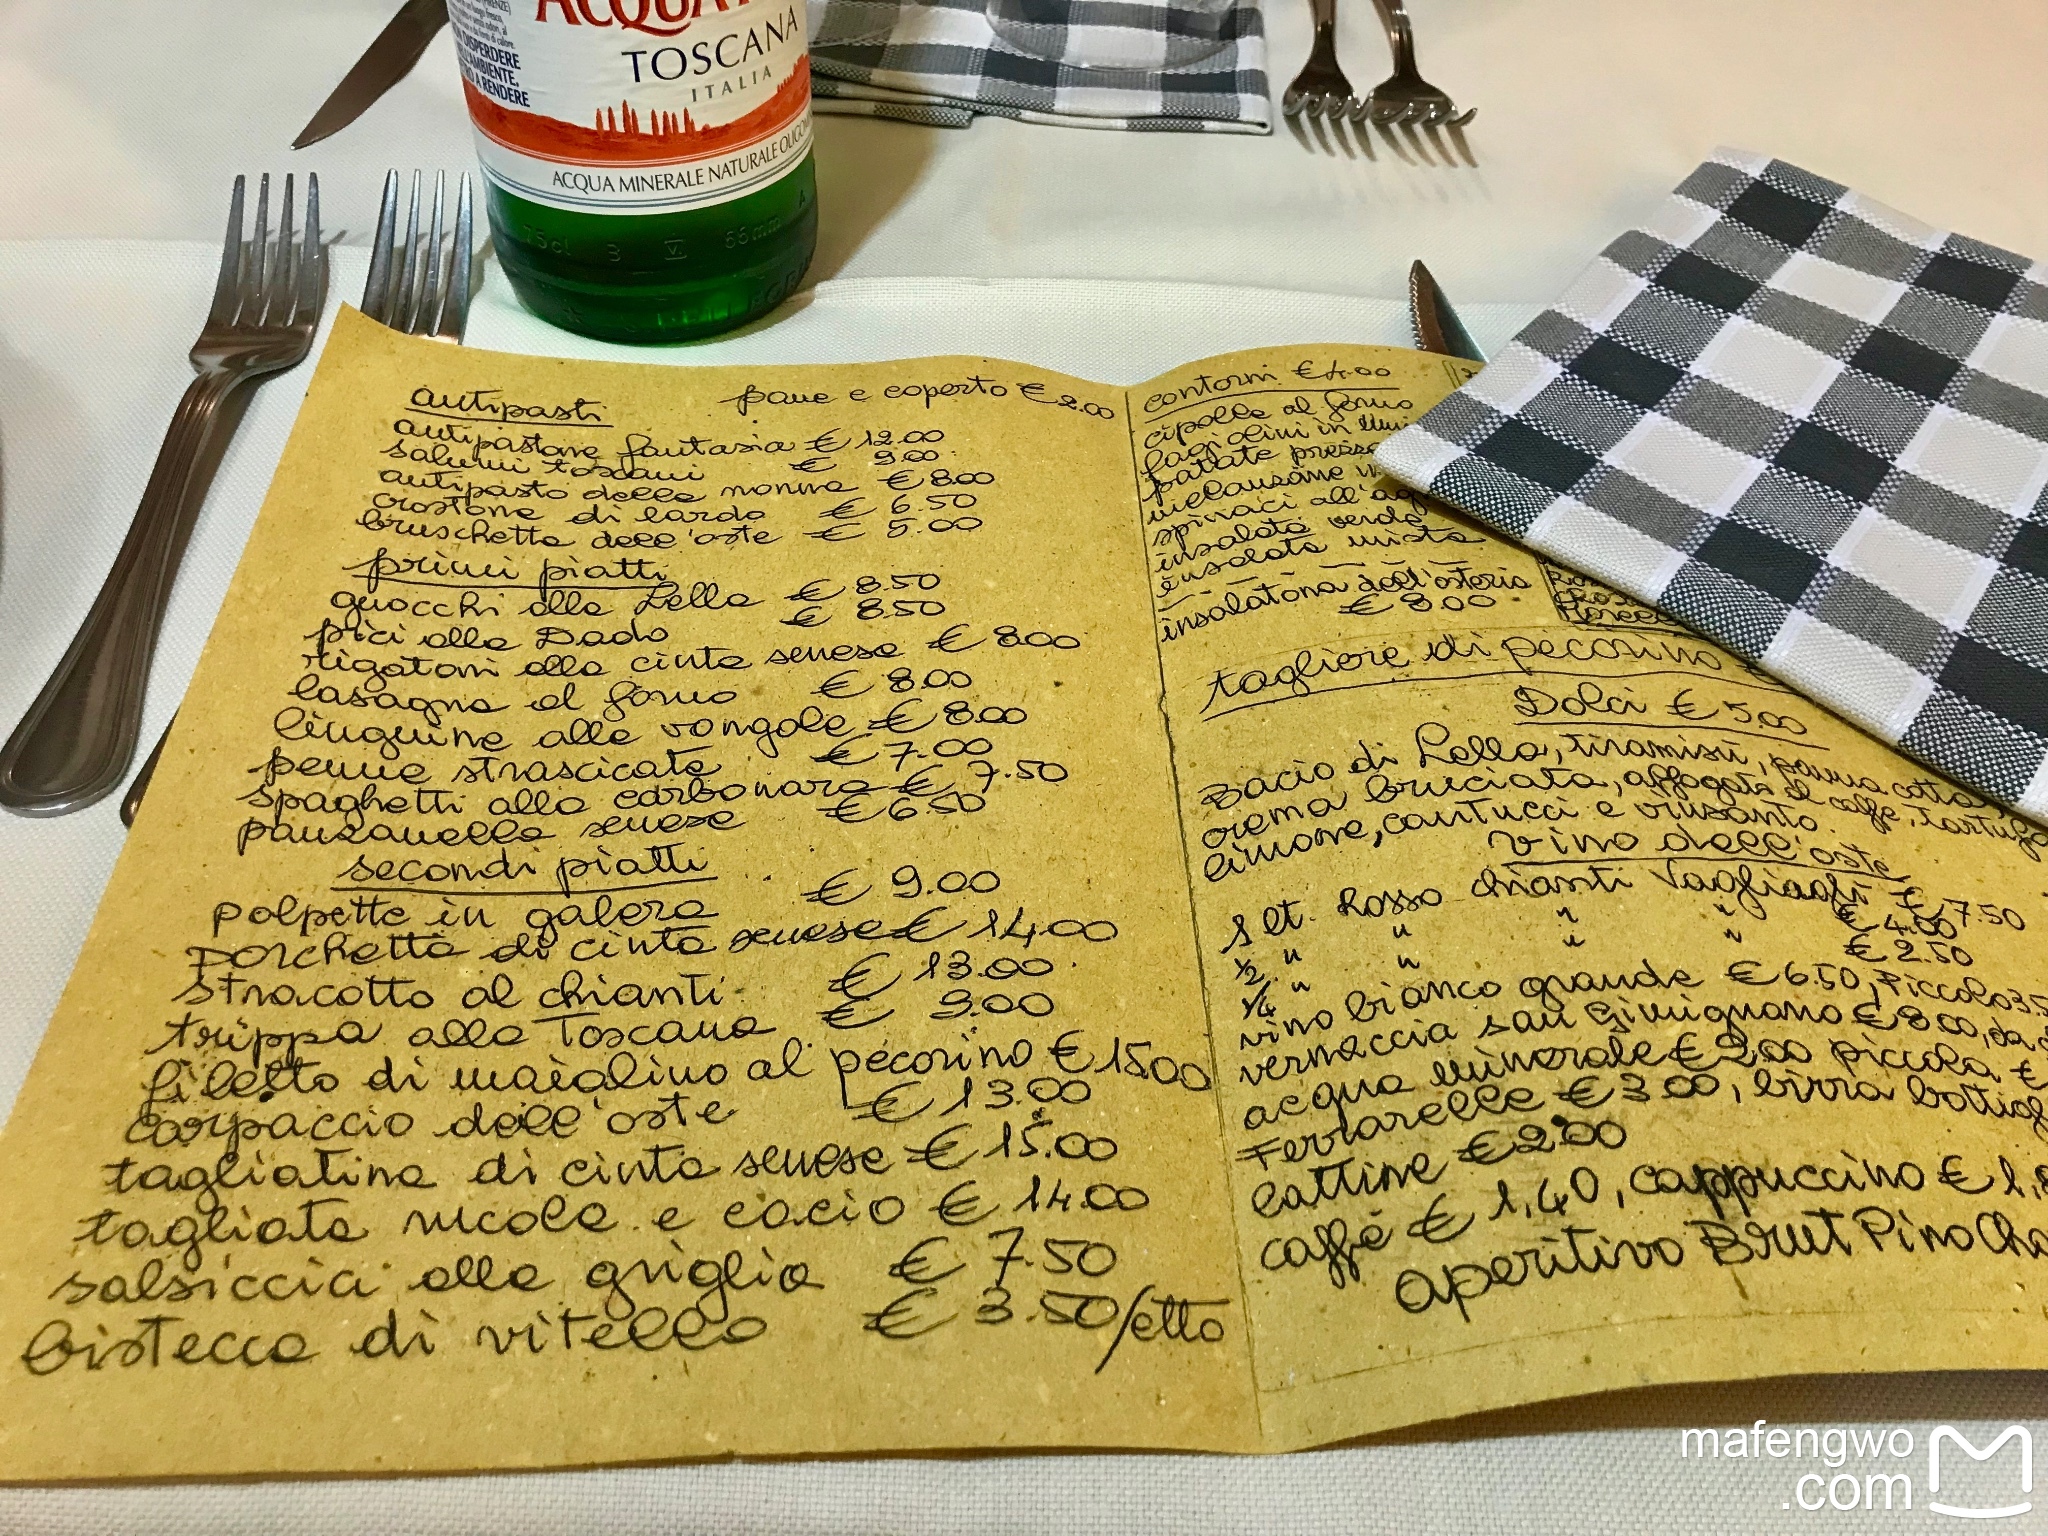 TOSCANA
ITALIA
DISPERDERE
A RENDERE
ACQUA MINERALE NATURALE
75cl 3 VI 66mm A
antipasti
pane e coperto € 2.00
antipastone fantasia € 12.00
salumi toscani € 9.00
antipasto della nonna € 8.00
crostone di lardo € 6.50
bruschetta dell'oste € 5.00
primi piatti
gnocchi alla Lella € 8.50
pici alla Dado € 8.50
rigatoni alla cinta senese € 8.00
lasagna al forno € 8.00
linguine alle vongole € 8.00
penne strascicate € 7.00
spaghetti alla carbonara € 7.50
panzanella senese € 6.50
secondi piatti
polpette in galera € 9.00
porchetta di cinta senese € 14.00
stracotto al chianti € 13.00
trippa alla Toscana € 9.00
filetto di maialino al pecorino € 15.00
carpaccio dell'oste € 13.00
tagliatina di cinta senese € 15.00
tagliata rucola e cacio € 14.00
salsiccia alla griglia € 7.50
bistecca di vitello € 3.50/etto
contorni € 4.00
cipolle al forno
fagiolini in
patate
melanzane
spinaci all'
insalata verde
insalata mista
insalatona dell'osteria
€ 8.00
tagliere di pecorino
Dolci € 5.00
Bacio di Lella, tiramisù, panna cotta,
crema bruciata, affogato al caffe, tartufo
limone, cantucci e vinsanto.
vino dell'oste
1 lt. Rosso chianti Vagliagli € 7.50
1/2 " " " " € 4.00
1/4 " " " " € 2.50
vino bianco grande € 6.50, piccolo 3.5
vernaccia san Gimignano € 8.00, da
acqua minerale € 2.00 piccola €
Ferrarelle € 3.00, birra
lattine € 2.00
caffè € 1,40, cappuccino € 1,8
aperitivo Brut Pino Cha
mafengwo
.com